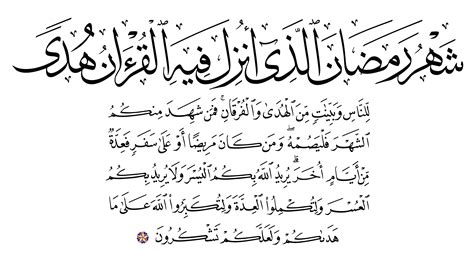 شَهْرُ رَمَضَانَ ٱلَّذِىٓ أُنزِلَ فِيهِ ٱلْقُرْءَانُ هُدًى
لِّلنَّاسِ وَبَيِّنَٰتٍ مِّنَ ٱلْهُدَىٰ وَٱلْفُرْقَانِ ۚ فَمَن شَهِدَ مِنكُمُ
ٱلشَّهْرَ فَلْيَصُمْهُ ۖ وَمَن كَانَ مَرِيضًا أَوْ عَلَىٰ سَفَرٍ فَعِدَّةٌ
مِّنْ أَيَّامٍ أُخَرَ ۗ يُرِيدُ ٱللَّهُ بِكُمُ ٱلْيُسْرَ وَلَا يُرِيدُ بِكُمُ
ٱلْعُسْرَ وَلِتُكْمِلُوا۟ ٱلْعِدَّةَ وَلِتُكَبِّرُوا۟ ٱللَّهَ عَلَىٰ مَا
هَدَىٰكُمْ وَلَعَلَّكُمْ تَشْكُرُونَ